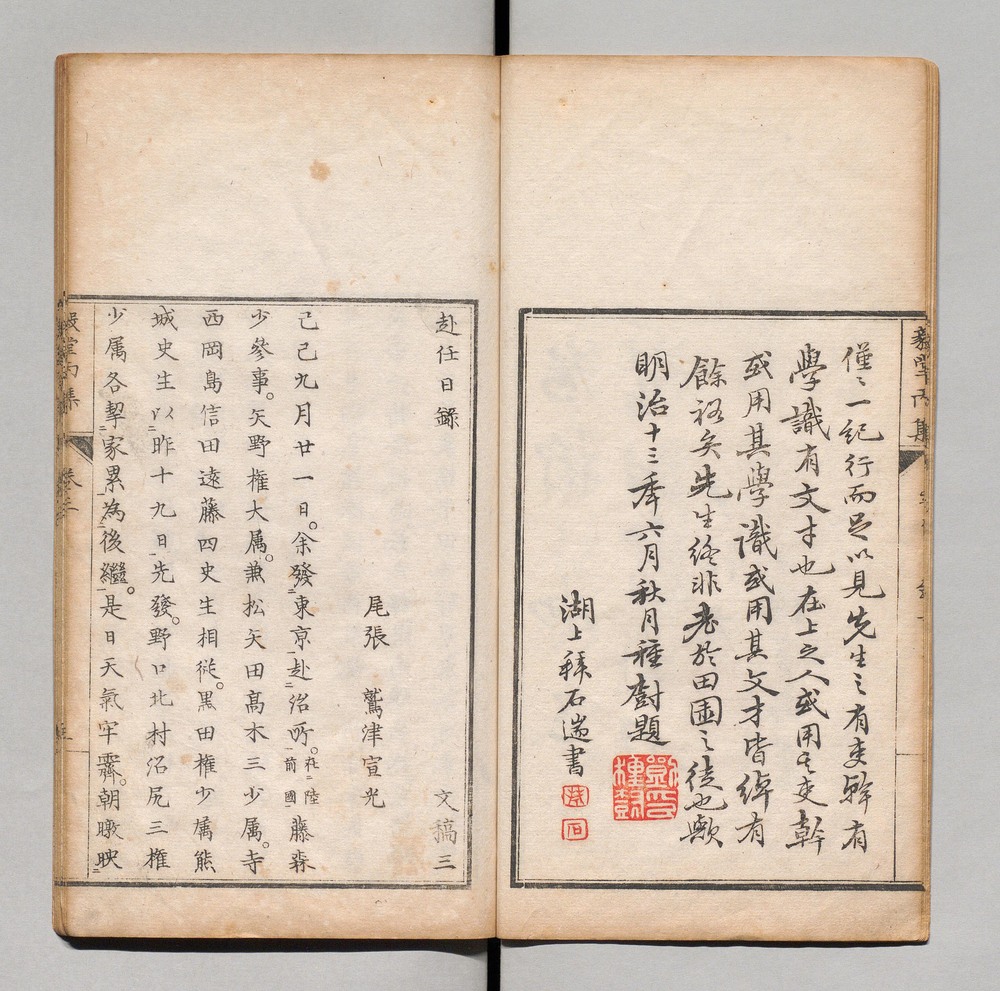 僅〻一紀行而足以見先生之有吏幹有
學識有文才也在上之人或用其吏幹
或用其學識或用其文才皆綽有
餘裕矣先生終非老於田圃之徒也歟
明治十三年六月秋月種樹題
湖上拜石遄書
赴任日錄
文稿三
尾張 鷲津宣光
己巳九月廿一日。余發東京赴治所。在陸前國藤森
少參事。矢野權大属。兼松矢田高木三少属。寺
西岡島信田遠藤四史生相從。黒田權少属熊
城史生以昨十九日先發。野口北村沼尻三權
少属各挈家累為後繼。是日天氣牢霽。朝暾映
毅堂丙集
卷三